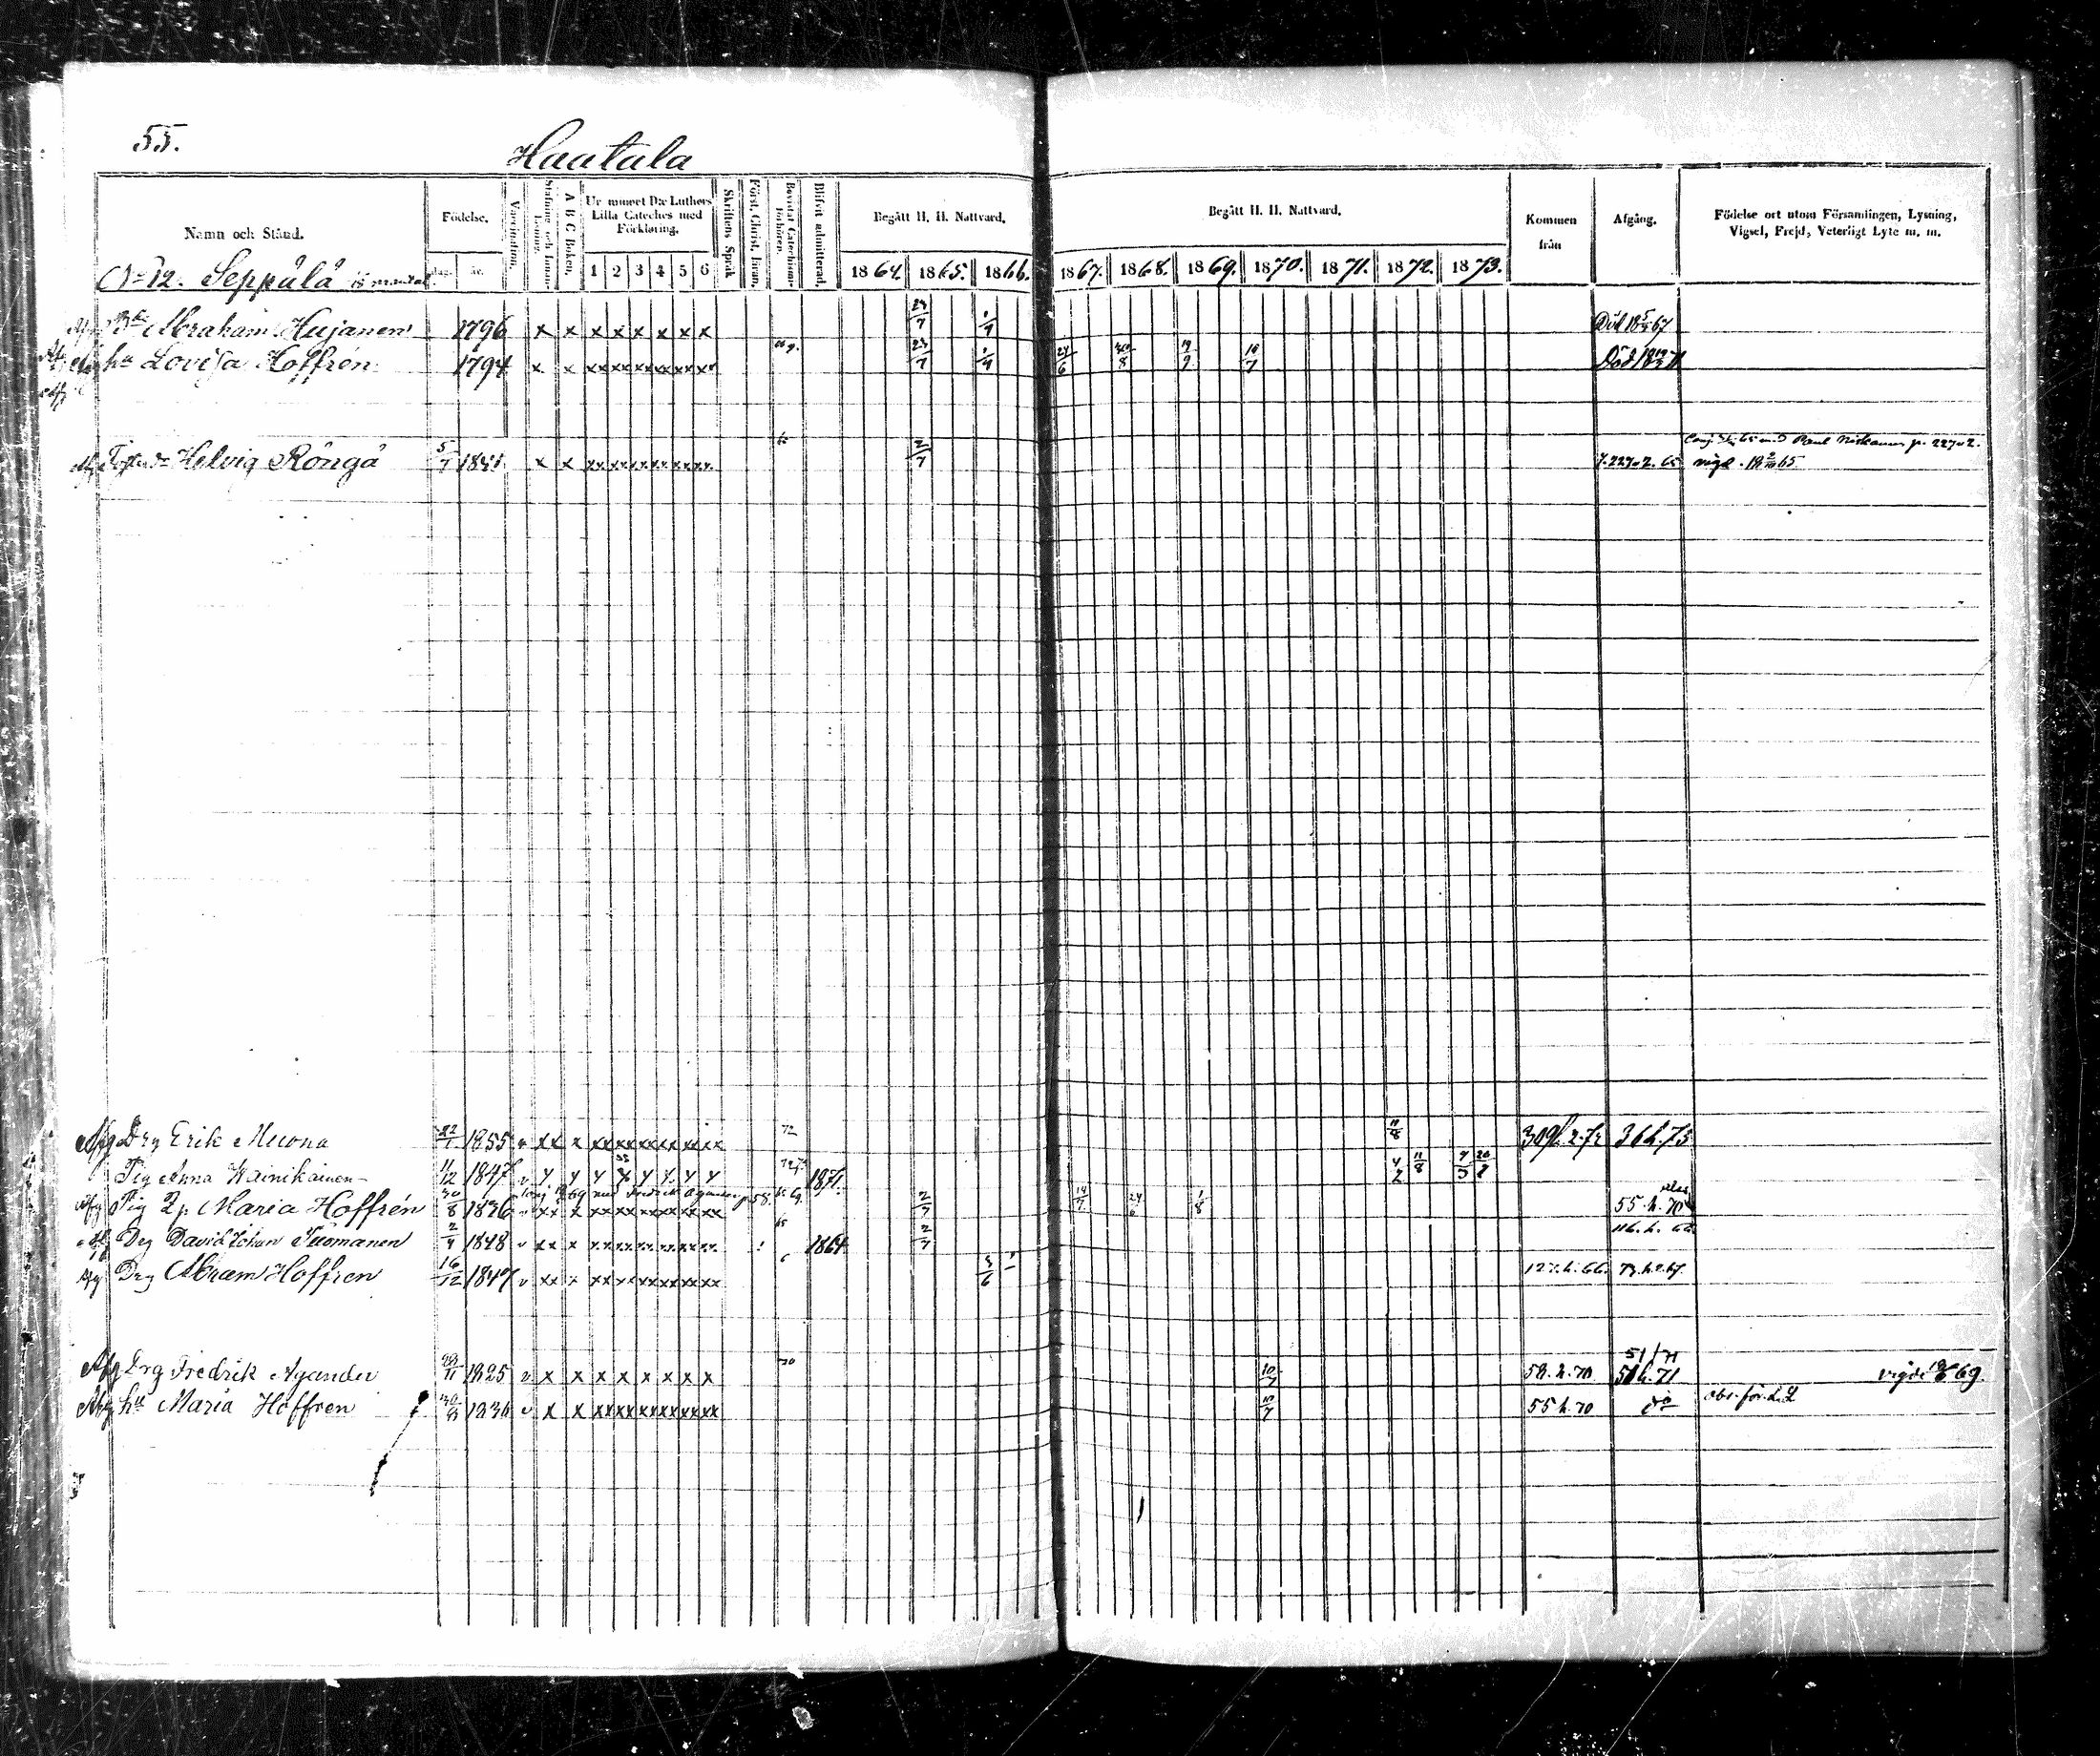 55.
Haatala
Namn och Stånd.
Födelse.
dag. år.
Vaccination.
Stafning och Innan-Läsning.
A B C Boken.
Ur minnet D:r Luthers Lilla Cateches med Förklaring.
1 2 3 4 5 6
Skriftens Språk
Först. Christ. Läran.
Bevistat Catechismi-förhören.
Blifvit admitterad.
Begått H. H. Nattvard.
1864. 1865. 1866.
Begått H. H. Nattvard.
1867. 1868. 1869. 1870. 1871. 1872. 1873.
Kommen från
Afgång.
Födelse ort utom Församlingen, Lysning, Vigsel, Frejd, Veterligt Lyte m. m.
No 12. Seppälä
Abraham Hujanen 1796 x x x x x x x x 23/7 1/7 Död 18 67
hu Lovisa Hoffrén 1794 x x xx xx xx xx xx xx 23/7 1/7 24/6 30/8 19/9 10/7 Död 18 71
Helvig Röngä 5/7 1841 x x xx xx xx xx xx xx 2/7 65 65
Afg Drg Erik Mecona 22/1 1855 v xx x xx xx xx xx xx xx 72 11/8 309 h. 72 36 h. 73
Pig Anna Wainikainen 11/12 1847 v y y y y y y y y 1871. 4/2 11/8
Afg Pig Maria Hoffrén 30/8 1836 v xx x xx xx xx xx xx xx 2/7 14/7 24/6 1/8 55. h. 70
med Fredrik Agander p 58.
Drg David Johan Tuomanen 2/4 1848 v xx x xx xx xx xx xx xx 65 1864 2/7 116. h.
Afg Drg Abram Hoffren 16/12 1847 v xx x xx xx xx xx xx xx 3/6 127. h. 66.
Afg Drg Fredrik Agander 1825 v x x x x x x x x 70 10/7 58. h. 70 51/71 51 h. 71 vigde 69.
Afg hu Maria Hoffren 30/8 1836 v x x xx xx xx xx xx xx 10/7 55 h. 70 do